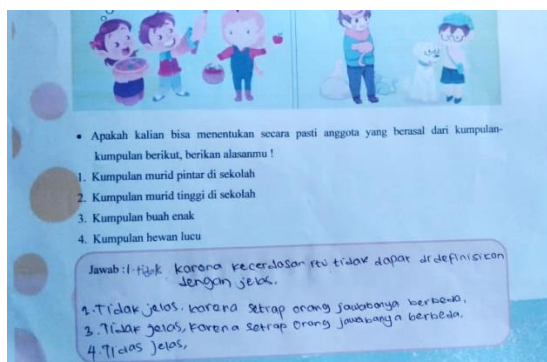 • Apakah kalian bisa menentukan secara pasti anggota yang berasal dari kumpulan-
kumpulan berikut, berikan alasanmu !
1. Kumpulan murid pintar di sekolah
2. Kumpulan murid tinggi di sekolah
3. Kumpulan buah enak
4. Kumpulan hewan lucu
Jawab : 1. tidak karena kecerdasan itu tidak dapat didefinisikan
dengan jelas.
2. Tidak jelas. karena setiap orang jawabanya berbeda.
3. Tidak jelas, karena setiap orang jawabanya berbeda.
4. Tidas jelas,